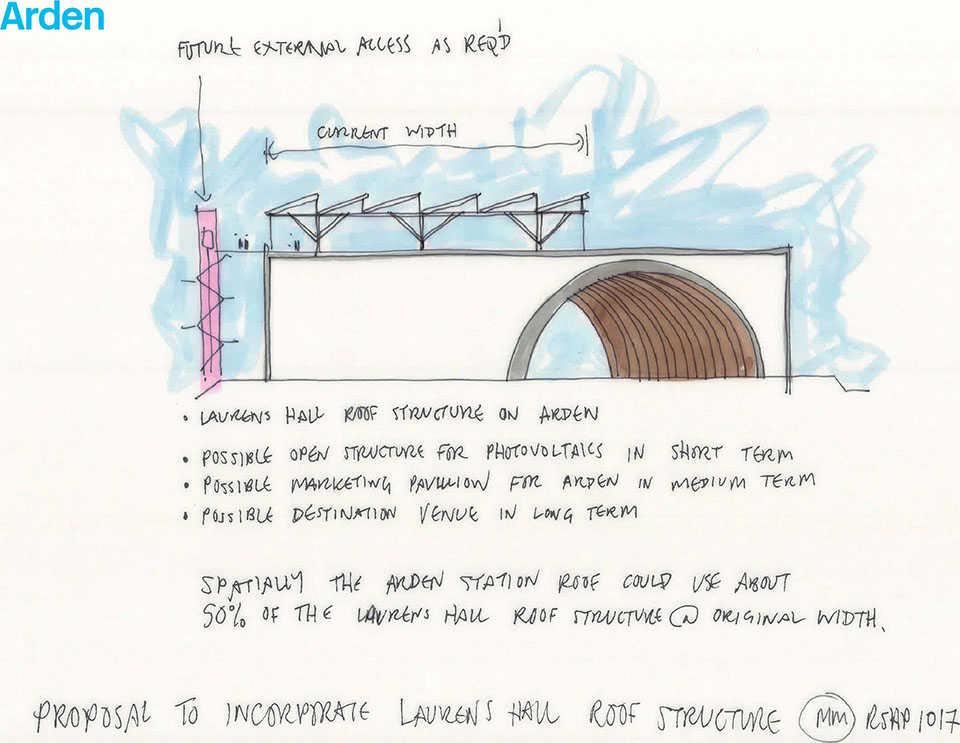 Arden
FUTURE EXTERNAL ACCESS AS REQ'D
CURRENT WIDTH
• LAURENS HALL ROOF STRUCTURE ON ARDEN
• POSSIBLE OPEN STRUCTURE FOR PHOTOVOLTAICS IN SHORT TERM
• POSSIBLE MARKETING PAVILLION FOR ARDEN IN MEDIUM TERM
• POSSIBLE DESTINATION VENUE IN LONG TERM
SPATIALLY THE ARDEN STATION ROOF COULD USE ABOUT
50% OF THE LAURENS HALL ROOF STRUCTURE @ ORIGINAL WIDTH.
PROPOSAL TO INCORPORATE LAURENS HALL ROOF STRUCTURE MM RSHP 1017